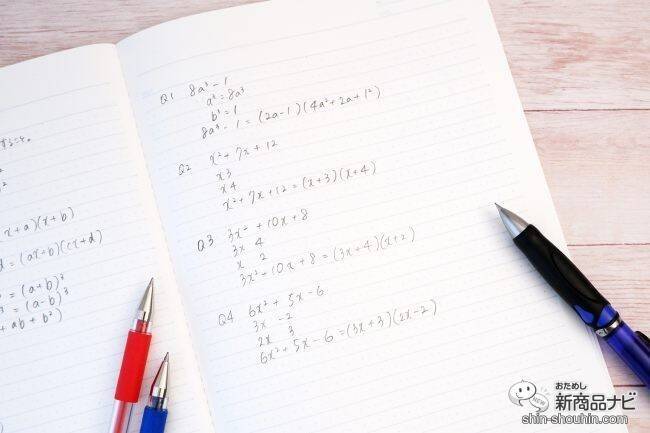 する こと。
x + a)(x + b)
d = (ax + b)(cx + d)
= (a + b)³
= (a - b)³
+ ab + b²)
Q1 8a³ - 1
a³ = 8a³
b³ = 1
8a³ - 1 = (2a - 1)(4a² + 2a + 1²)
Q2 x² + 7x + 12
x 3
x 4
x² + 7x + 12 = (x + 3)(x + 4)
Q3 3x² + 10x + 8
3x 4
x 2
3x² + 10x + 8 = (3x + 4)(x + 2)
Q4 6x² + 5x - 6
3x -2
2x 3
6x² + 5x - 6 = (3x + 3)(2x - 2)
NEW
おためし
新商品ナビ
shin-shouhin.com